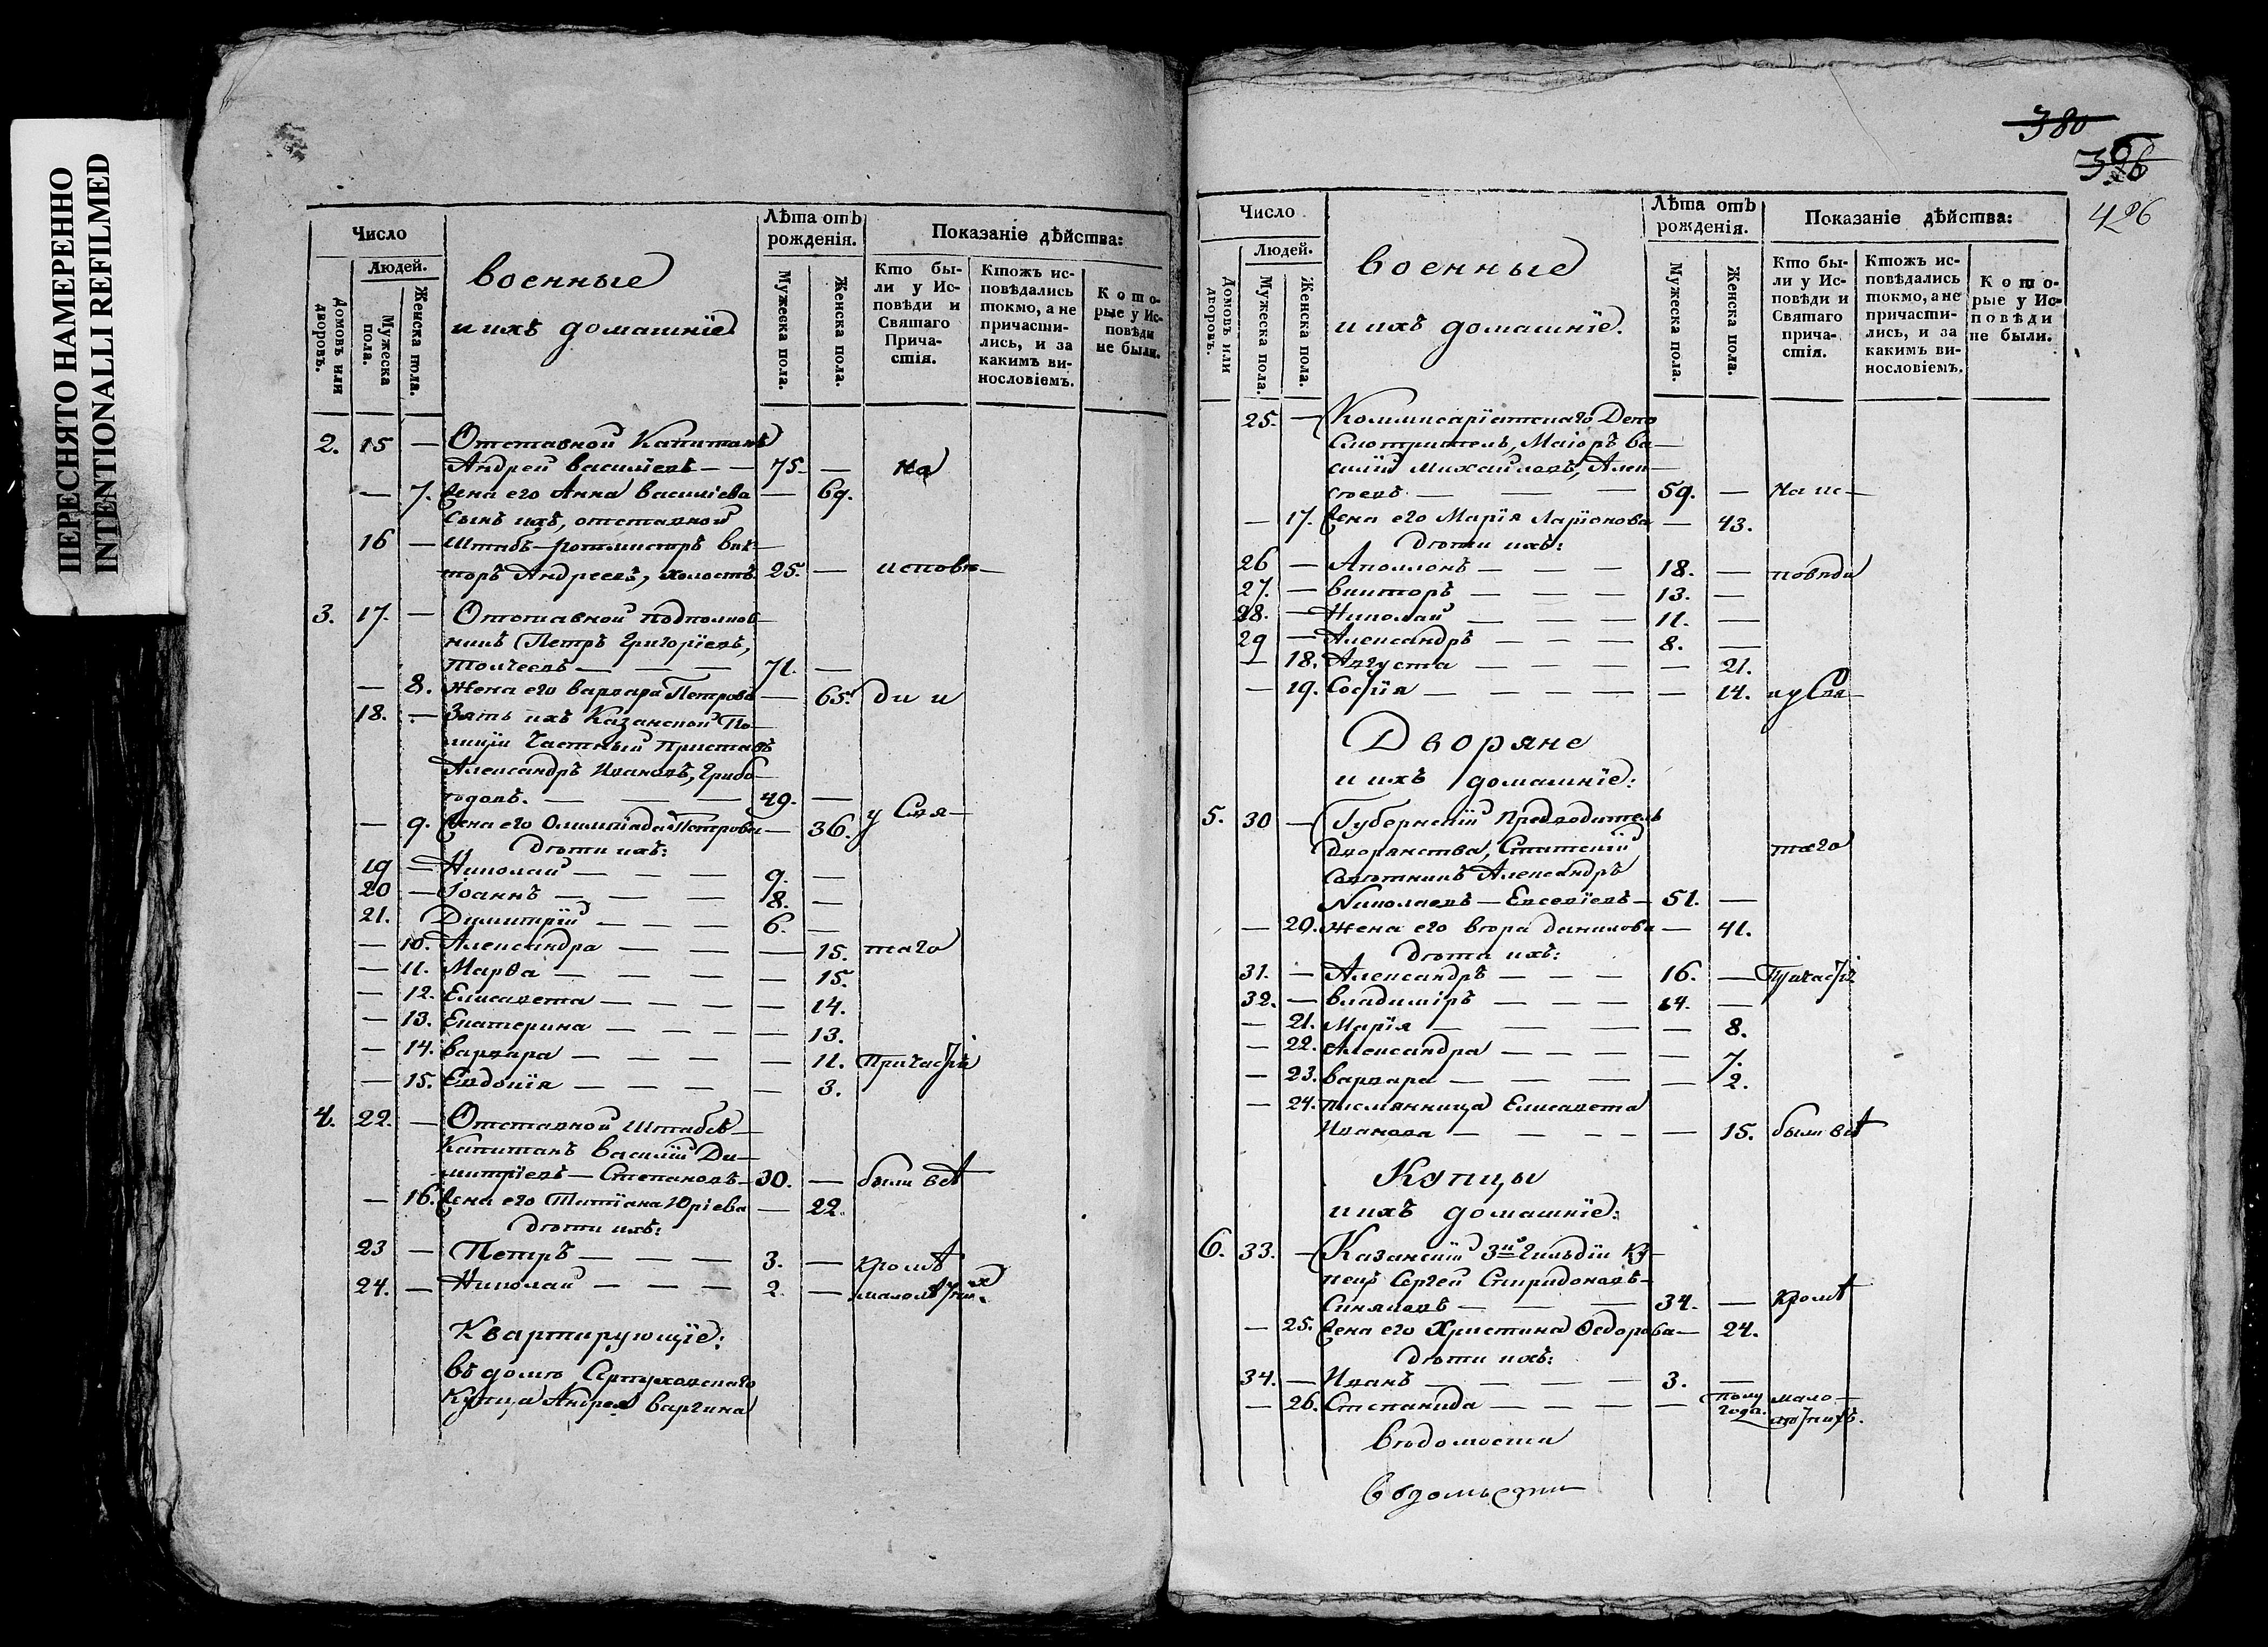 ПЕРЕСНЯТО НАМЕРЕННО
INTENTIONALLI REFILMED
Число
Людей.
Домовъ или дворовъ.
Мужеска пола.
Женска пола.
военные
и ихъ домашнїе
Лѣта отъ рожденія.
Мужеска пола.
Женска пола.
Показаніе дѣйства:
Кто бы-
ли у Ис-
повѣди и
Святаго
Прича-
стія.
Ктожъ ис-
повѣдались
токмо, а не
причасти-
лись, и за
какимъ ви-
нословіемъ.
Кото-
рые у Ис-
повѣди
не были.
2. 15 — Отставной Капитанъ
Андрей Василіевъ — — 75. — На
— 7. Жена его Анна Василіева — 69.
Сынъ ихъ, отставной
16 — Штабъ-ротмистръ Вик-
торъ Андреевъ, холостъ 25. — исповѣ-
3. 17. — Отставной подполков-
никъ Петръ Григорїевъ,
— — — 71. —
— 8. Жена его Варвара Петрова — 65. ди и
18. — Зять ихъ Казанской По-
лиціи Частный Приставъ
Александръ Ивановъ, Грибо-
— — — 49. —
— 9. Жена его Олимпїада Петрова — 36. у Свя-
дѣти ихъ:
19 — Николай — — — 9. —
20 — Іоаннъ — — — 8. —
21. Димитрїй — — — 6. —
— 10. Александра — — — 15. таго
— 11. Марѳа — — — — 15.
— 12. Елисавета — — — — 14.
— 13. Екатерина — — — — 13.
— 14. Варвара — — — — 11. Причастїя
— 15. Евдокїя — — — — 3.
4. 22. — Отставной Штабсъ-
Капитанъ Василїй Ди-
митрїевъ — Степановъ — 30. — были всѣ
— 16. Жена его Татїана Юрїева — 22.
дѣти ихъ:
23 — Петръ — — — 3. — Кромѣ
24. — Николай — — — 2. — малолѣтних.
Квартирующїе:
Въ домѣ Серпуховскаго
Купца Андрея Варгина
380
426
Число
Людей.
Домовъ или дворовъ.
Мужеска пола.
Женска пола.
военные
и ихъ домашнїе.
Лѣта отъ рожденія.
Мужеска пола.
Женска пола.
Показаніе дѣйства:
Кто бы-
ли у Ис-
повѣди и
Святаго
прича-
стія.
Ктожъ ис-
повѣдались
токмо, а не
причасти-
лись, и за
какимъ ви-
нословіемъ.
Кото-
рые у Ис-
повѣди
не были.
25. — Коммисарїатскаго Депо
Смотритель, Маїоръ Ва-
силїй Михайловъ, Алек-
сѣевъ — — — 59. — На ис-
— 17. Жена его Марїя Ларїонова — 43.
дѣти ихъ:
26 — Аполлонъ — — — 18. — повѣди
27. — Викторъ — — — 13. —
28. — Николай — — — 11. —
29 — Александръ — — — 8. —
— 18. Августа — — — — 21.
— 19. Софїя — — — — 14. и у Свя-
Дворяне
и ихъ домашнїе:
5. 30 — Губернскїй Предводитель
Дворянства, Статскїй таго
Совѣтникъ Александръ
Николаевъ — Евсевїевъ — 51. —
— 20. Жена его Вѣра Данилова — 41.
дѣти ихъ:
31. — Александръ — — — 16. — Причастїя
32. — Владимїръ — — — 14. —
— 21. Марїя — — — — 8.
— 22. Александра — — — — 7.
— 23. Варвара — — — — 2.
— 24. племянница Елисавета
Иванова — — — — — 15. были всѣ
Купцы
и ихъ домашнїе:
6. 33. — Казанскїй 3й Гильдїи Ку-
пецъ Сергей Спиридоновъ —
Синяковъ — — — 34. — Кромѣ
— 25. Жена его Христина Ѳедорова — 24.
дѣти ихъ:
34. — Иванъ — — — — 3. —
— 26. Степанида — — — — — полу мало-
года. лѣтнихъ.
Вѣдомости